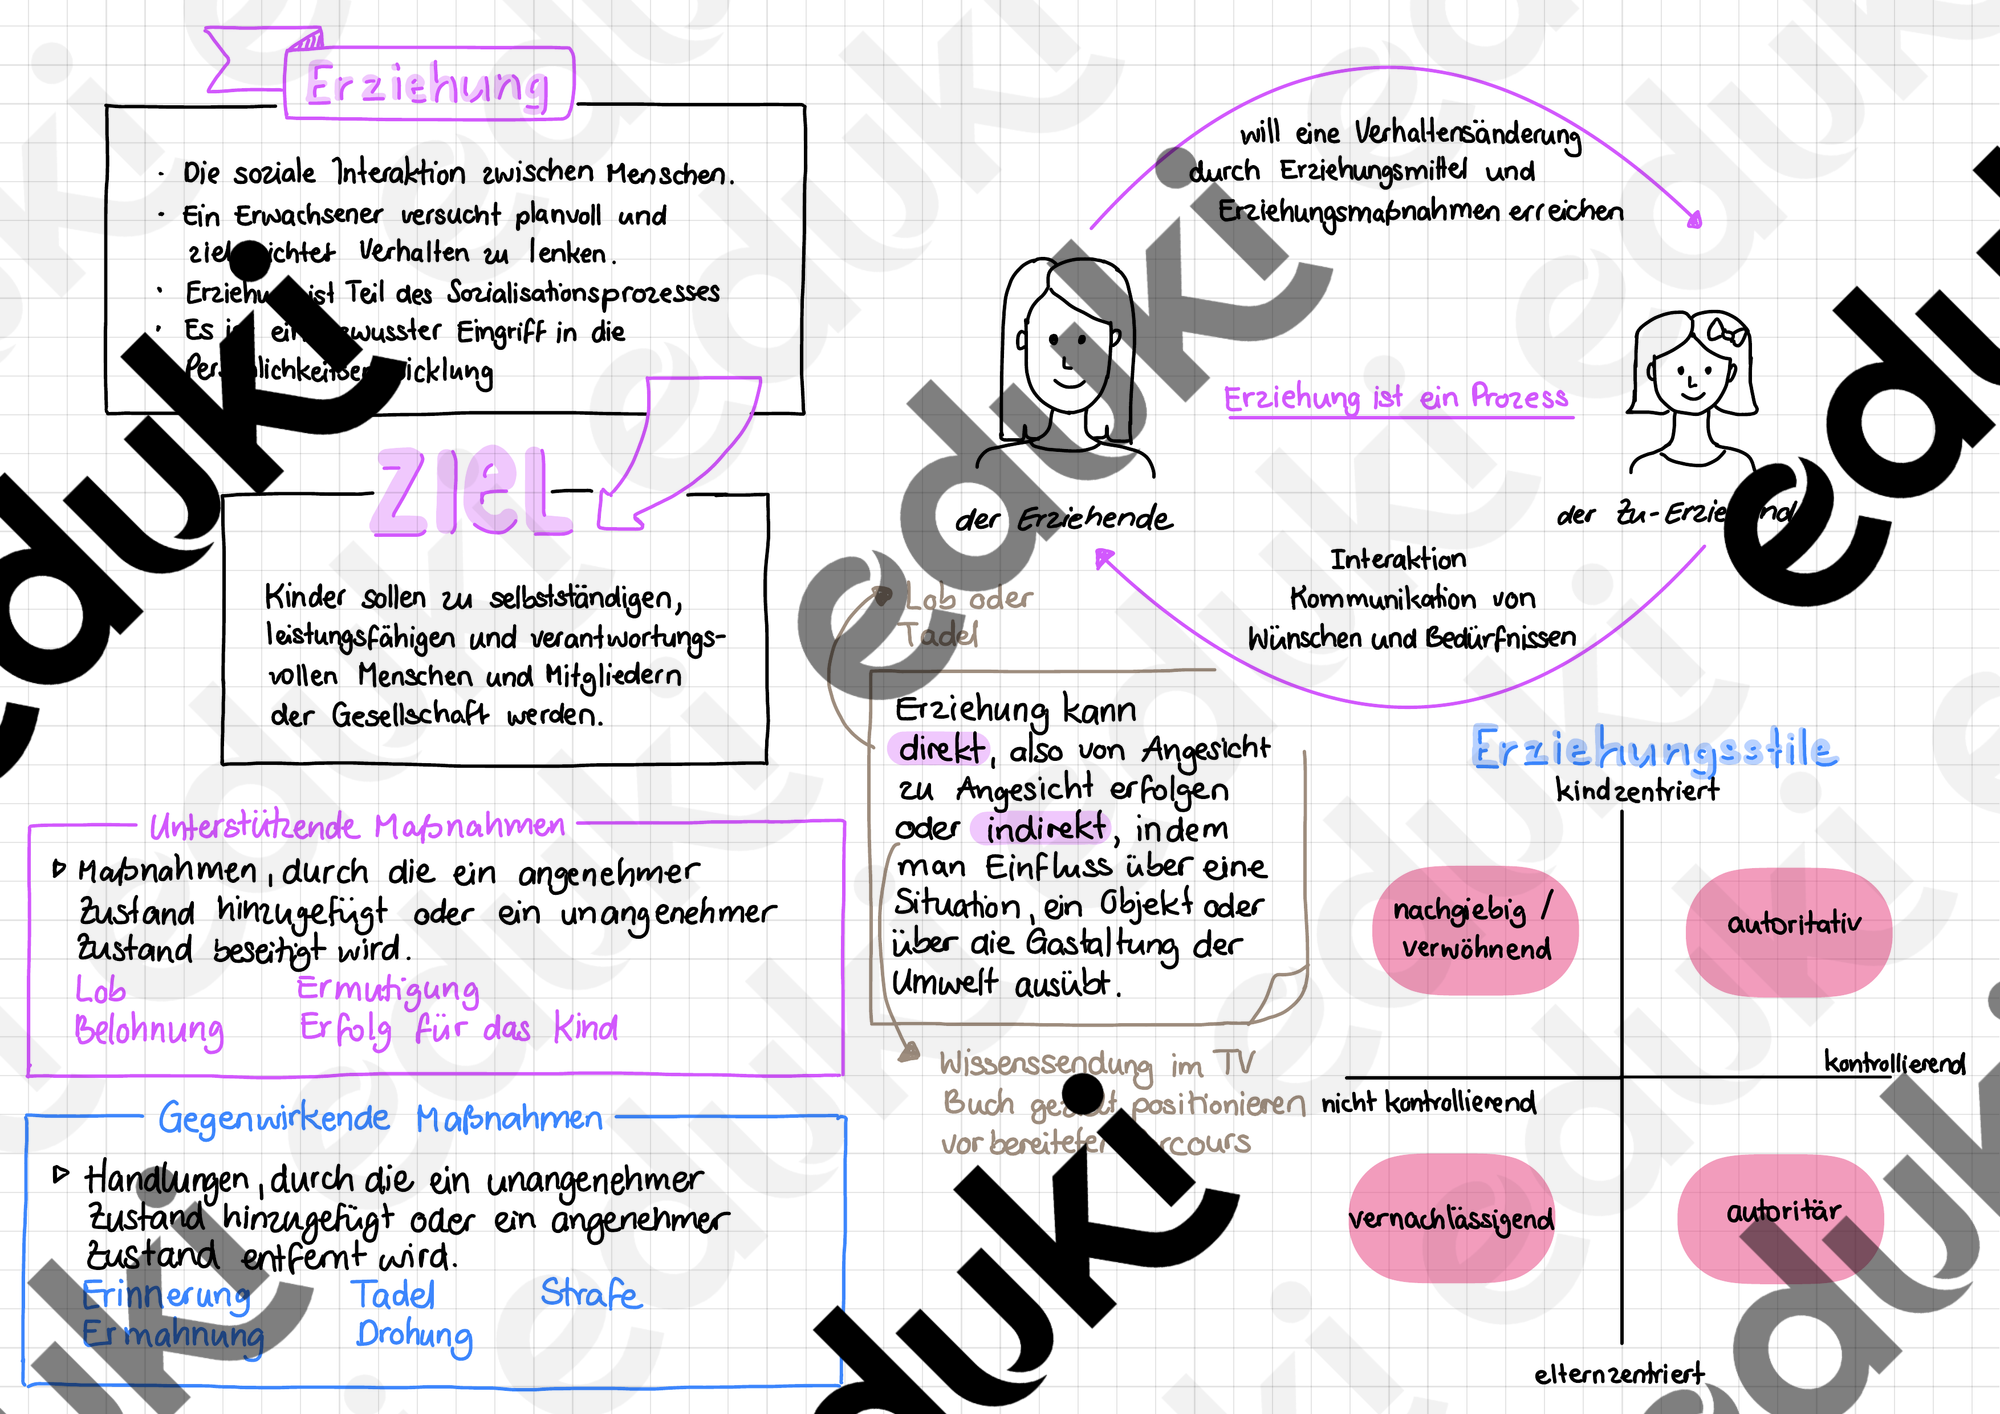 Erziehung
· Die soziale Interaktion zwischen Menschen.
· Ein Erwachsener versucht planvoll und
Verhalten zu lenken.
· ist Teil des Sozialisationsprozesses
· Es Eingriff in die
ZIEL
Kinder sollen zu selbstständigen,
leistungsfähigen und verantwortungs-
vollen Menschen und Mitgliedern
der Gesellschaft werden.
Unterstützende Maßnahmen
Maßnahmen, durch die ein angenehmer
Zustand hinzugefügt oder ein unangenehmer
Zustand beseitigt wird.
Lob Ermutigung
Belohnung Erfolg für das Kind
Gegenwirkende Maßnahmen
Handlungen, durch die ein unangenehmer
Zustand hinzugefügt oder ein angenehmer
Zustand entfernt wird.
Erinnerung Tadel Strafe
Ermahnung Drohung
will eine Verhaltensänderung
durch Erziehungsmittel und
Erziehungsmaßnahmen erreichen
Erziehung ist ein Prozess
der Erziehende
der
Interaktion
Kommunikation von
Wünschen und Bedürfnissen
Lob oder
Tadel
Erziehung kann
direkt, also von Angesicht
zu Angesicht erfolgen
oder indirekt, indem
man Einfluss über eine
Situation, ein Objekt oder
über die Gastaltung der
Umwelt ausübt.
Wissenssendung im TV
Buch positionieren
Erziehungsstile
kindzentriert
nachgiebig /
verwöhnend
autoritativ
kontrollierend
nicht kontrollierend
vernachlässigend
autoritär
elternzentriert
eduki